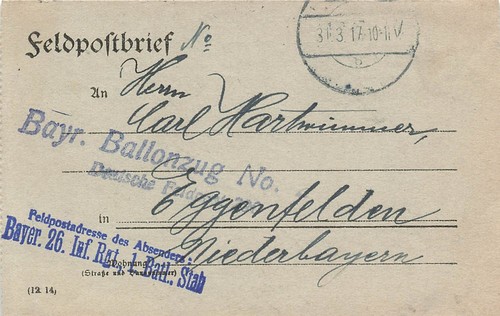 Feldpostbrief No
31.3.17.10-11 V
b
An Herrn
Carl Hartwimmer,
Bayr. Ballonzug No.
Deutsche
in Eggenfelden
Niederbayern
Feldpostadresse des Absenders:
Bayer. 26. Inf. Rgt., 1. Batl., Stab
Wohnung
(Straße und Hausnummer)
(12. 14)